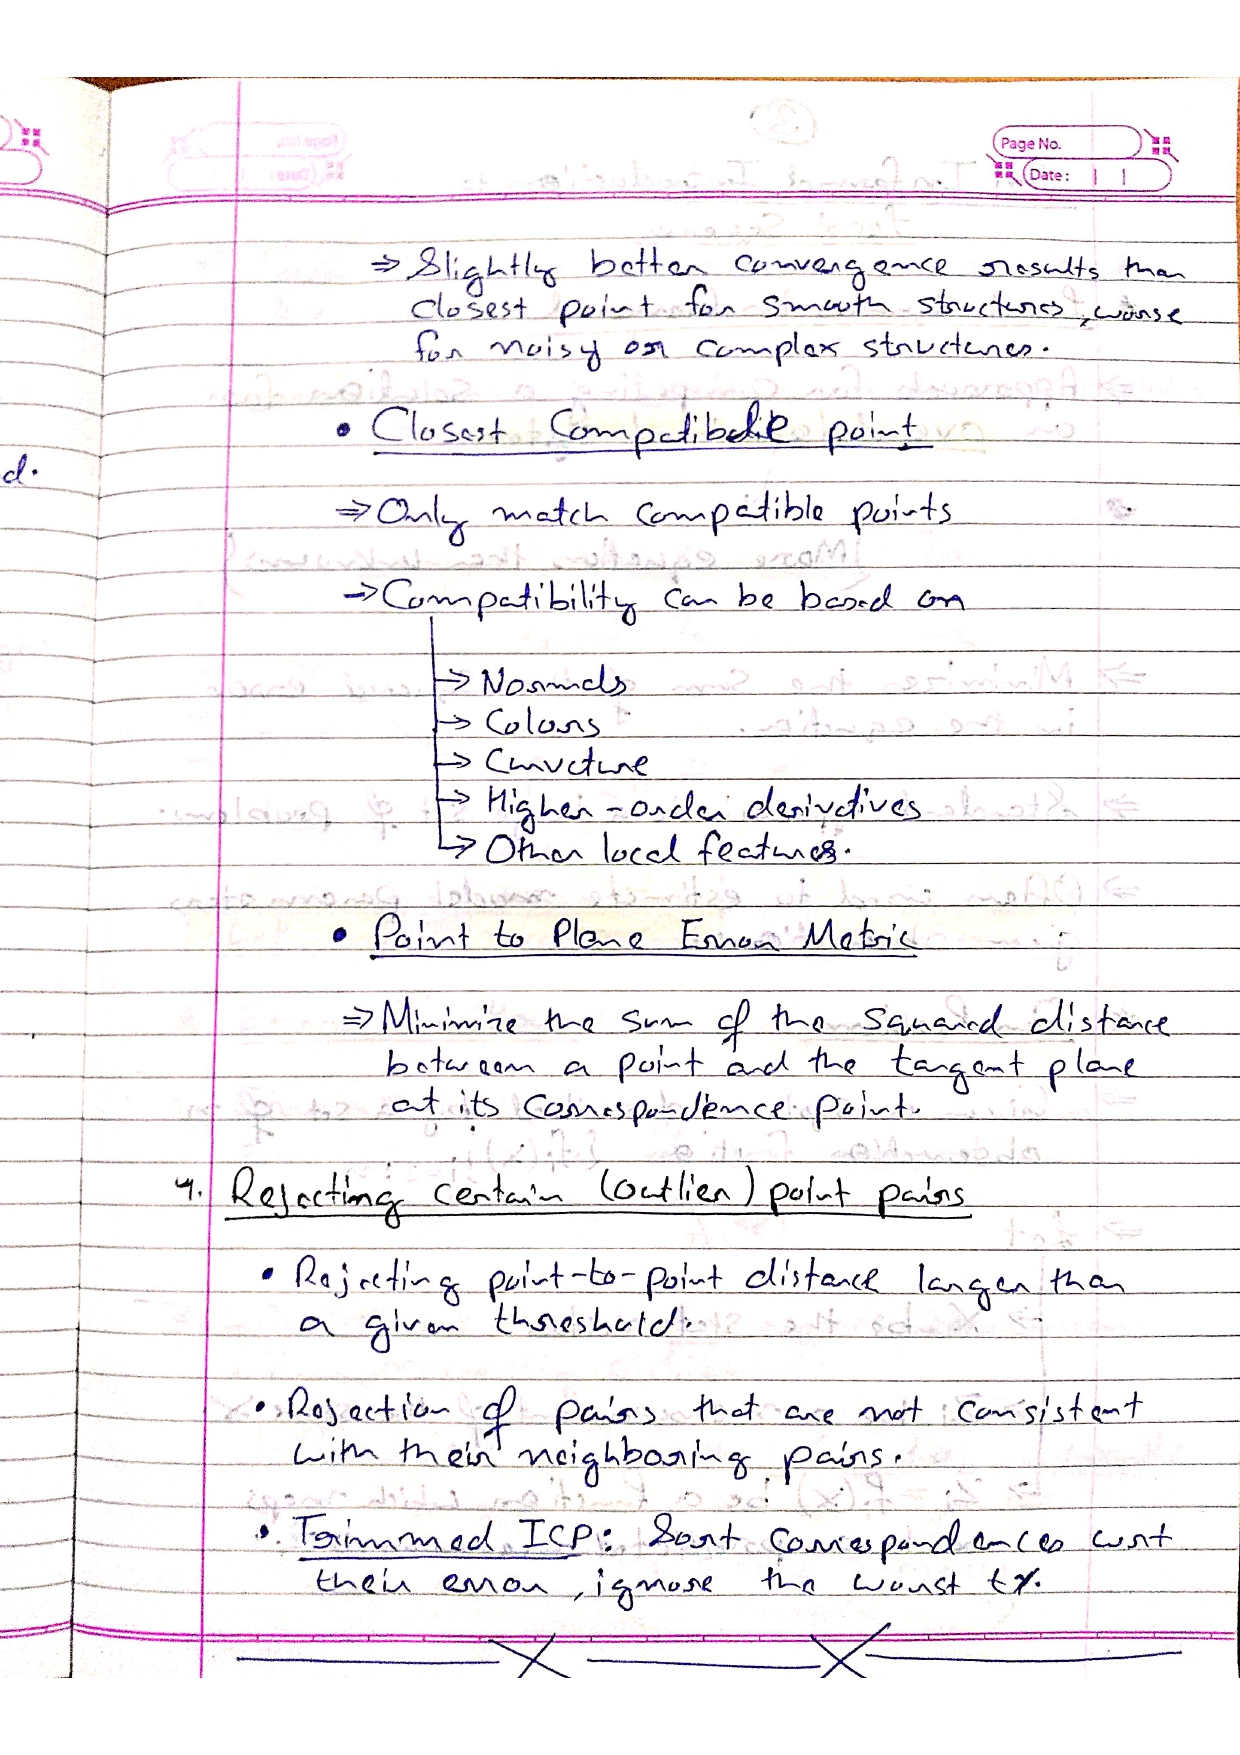 Page No.
Date:
⇒ Slightly better convergence results than
closest point for smooth structures, worse
for noisy or complex structures.
• Closest Compatible point
⇒ Only match compatible points
→ Compatibility can be based on
→ Normals
→ Colors
→ Curvature
→ Higher-order derivatives
→ Other local features.
d.
• Point to Plane Error Metric
⇒ Minimize the sum of the squared distance
between a point and the tangent plane
at its correspondence point.
4. Rejecting certain (outlier) point pairs
• Rejecting point-to-point distance larger than
a given threshold.
• Rejection of pairs that are not consistent
with their neighboring pairs.
• Trimmed ICP: Sort correspondences wrt
their error, ignore the worst t%.